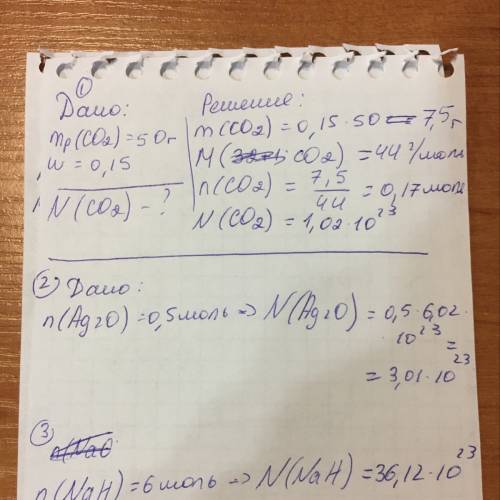 ①
Дано:
mр(CO2)=50г
w=0,15
N(CO2)-?
Решение:
m(CO2)=0,15·50=7,5г
M(CO2)=44г/моль
n(CO2)=7,5/44=0,17моль
N(CO2)=1,02·10²³
② Дано:
n(Ag2O)=0,5моль⇒N(Ag2O)=0,5·6,02·
·10²³=
=3,01·10²³
③
n(NaO
n(NaH)=6моль⇒N(NaH)=36,12·10²³